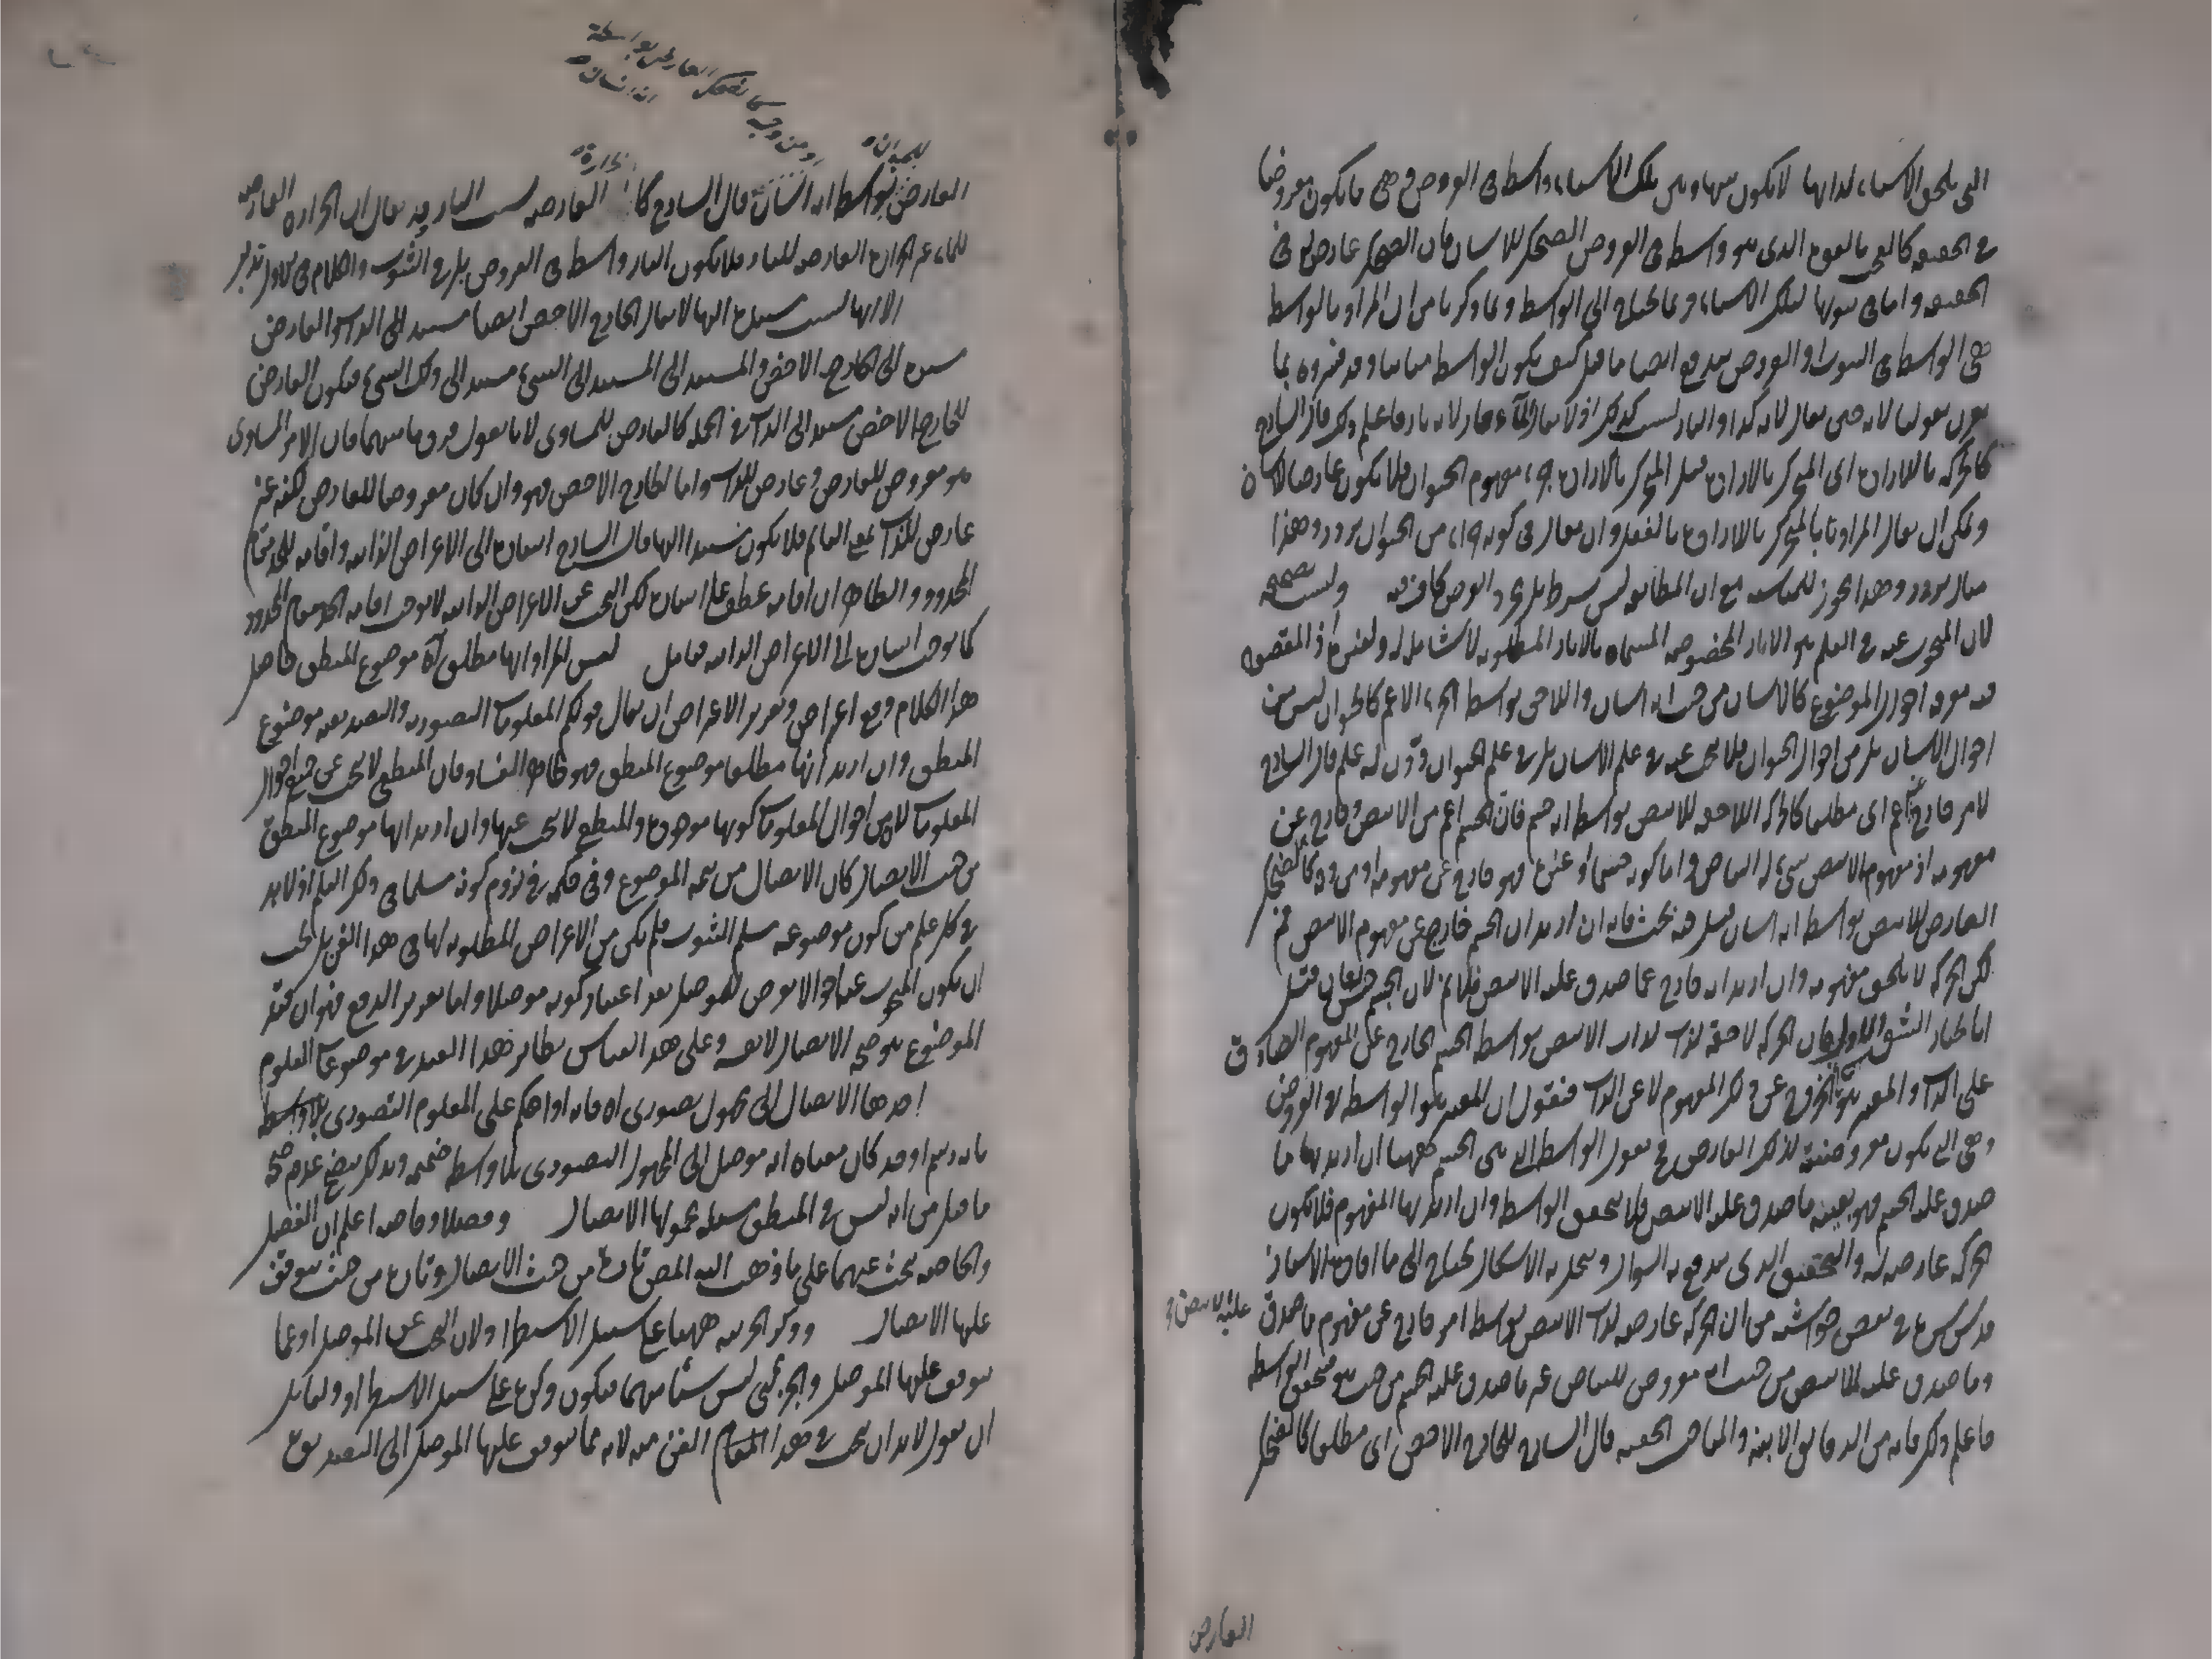 التي تلحق الاشياء لذاتها لا يكون بينها وبين تلك الاشياء واسطة في العروض وهي ما يكون معروضا
في الحقيقة كالتعجب الذي هو واسطة في العروض الضحك للانسان فان الضحك عارض له في
الحقيقة واما في ثبوتها لتلك الاشياء فربما يحتاج الى الواسطة وبما ذكرنا من ان المراد بالواسطة
هي الواسطة في الثبوت او العروض يندفع ايضا ما قيل كيف يكون الواسطة مباينا وقد فسروه بما
يقرن بقولنا لانه حين يقال لانه كذا والنار ليست كذلك اذ لا يقال الماء حار لانه نار فاعلم ذلك قال الشارح
كالحركة بالارادة اي المتحرك بالارادة قيل المتحرك بالارادة جزء مفهوم الحيوان فلا يكون عارضا للانسان
ويمكن ان يقال المراد بالمتحرك بالارادة بالفعل وان يقال في كونه جزء من الحيوان تردد وهذا
مثال مع ان المطابقة ليس بشرط بل مجرد الفرض كاف فيه وليست صحيحة
لان المبحوث عنه في العلم هو الاثار المخصوصة المسماة بالاثار المطلوبة لا شاملة له ولغيره اذ المقصود
فيه معرفة احوال الموضوع كالانسان من حيث انه انسان واللاحق بواسطة الجزء الاعم كالحيوان ليس من
احوال الانسان بل من احوال الحيوان فلا يبحث عنه في علم الانسان بل في علم الحيوان ان دون له علم قال الشارح
لامر خارج اعم اي مطلقا كالحركة اللاحقة للابيض بواسطة انه جسم فان الجسم اعم من الابيض وخارج عن
مفهومه اذ مفهوم الابيض شيء له البياض واما كونه جسما او غيره فهو خارج عن مفهومه او من وجه كالضحك
العارض للابيض بواسطة انه انسان قيل فيه بحث فانه ان اريد ان الجسم خارج عن مفهوم الابيض فم
لكن الحركة لا تلحق مفهومه وان اريد انه خارج عما صدق عليه الابيض فلا نم لان الجسم
انا نختار الشق الاول فان الحركة لاحقة لذات الابيض بواسطة الجسم الخارج عن المفهوم الصادق
على الذات والمعتبر هو الخروج عن ذلك المفهوم لا عن الذات فنقول ان المعتبر هو الواسطة في العروض
وهي التي يكون معروضة لذلك العارض فح نقول الواسطة التي هي الجسم ههنا ان اريد بها ما
صدق عليه الجسم فهو بعينه ما صدق عليه الابيض فلا يتحقق الواسطة وان اريد بها المفهوم فلا يكون
الحركة عارضة له والتحقيق الذي يندفع به السؤال وينحل به الاشكال يحتاج الى ما افاده الاستاذ
قدس سره في بعض حواشيه من ان الحركة عارضة لذات الابيض بواسطة امر خارج عن مفهوم ما صدق عليه الابيض
وما صدق عليه الابيض من حيث انه معروض للبياض غير ما صدق عليه الجسم من حيث هو فتحقق الواسطة
فاعلم ذلك فانه من الدقائق الانيقة والمباحث الحقيقية قال الشارح للخارج الاخص اي مطلقا كالضحك
العارض
او من وجه كالضحك العارض بواسطة
انه انسان
للحيوان
العارض بواسطة انه انسان قال الشارح كالحرارة العارضة بسبب النار قد يقال ان الحرارة العارضة
للماء غير الحرارة العارضة للنار فلا يكون النار واسطة في العروض بل في الثبوت والكلام في الاول تدبر
الا انها ليست مستندة اليها لا يقال الخارج الاخص ايضا مستند الى الذات والعارض
مستند الى الخارج الاخص والمستند الى المستند الى الشيء مستند الى ذلك الشيء فيكون العارض
للخارج الاخص مستندا الى الذات في الجملة كالعارض للمساوي لانا نقول فرق ما بينهما فان الامر المساوي
هو معروض للعارض وعارض للذات واما الخارج الاخص فهو وان كان معروضا للعارض لكنه غير
عارض للذات فلا يكون مستندا اليها قال الشارح اشارة الى الاعراض الذاتية واقامة للحد مقام
المحدود والظاهر ان اقامة عطف على اشارة لكن البحث عن الاعراض الذاتية لا يوجب اقامة الحد مقام المحدود
كما يوجب اشارة الى الاعراض الذاتية فتأمل ليس المراد انها مطلقا اه موضوع المنطق حاصل
هذا الكلام دفع اعتراض وتقرير الاعتراض ان يقال قولكم المعلومات التصورية والتصديقية موضوع
المنطق وان اريد انها مطلقا موضوع المنطق فهو ظاهر الفساد فان المنطقي لا يبحث عن جميع احوال
المعلومات لان من احوال المعلومات كونها موجودة والمنطقي لا يبحث عنها وان اريد انها موضوع المنطق
من حيث الايصال كان الايصال من تتمة الموضوع وفي حكمه في لزوم كونه مسلما في ذلك العلم اذ لا بد
في كل علم من كون موضوعه مسلم الثبوت فلم يكن من الاعراض المطلوبة لها في هذا الفن بل يجب
ان يكون المبحوث عنها احوالا تعرض للموصل بعد اعتبار كونه موصلا واما تقرير الدفع فهو ان قيد
الموضوع هو صحة الايصال لا نفسه وعلى هذا القياس نظائر هذا القيد في موضوعات العلوم
احدها الايصال الى مجهول تصوري اه فانه اذا حكم على المعلوم التصوري بلا واسطة
بانه رسم او حد كان معناه انه موصل الى المجهول التصوري بلا واسطة ضميمة وبذلك يتضح عدم صحة
ما قيل من انه ليس في المنطق مسئلة محمولها الايصال وفصلا وخاصة اعلم ان الفصل
والخاصة يبحث عنهما على ما ذهب اليه المص تارة من حيث الايصال وتارة من حيث يتوقف
عليها الايصال وذكر الجزئية ههنا على سبيل الاستطراد لان البحث عن الموصل او عما
يتوقف عليها الموصل والجزئي ليس شيئا منهما فيكون ذكره على سبيل الاستطراد ولقائل
ان يقول لا بد ان يبحث في هذا الفن منه لانه مما يتوقف عليها الموصل الى التصديق